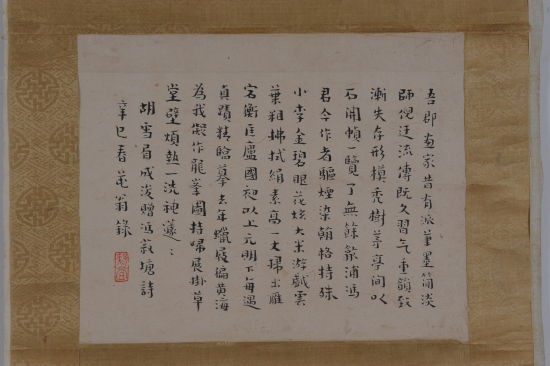 吾郡画家昔有派筆墨簡淡
師倪迂流傳既久習气重韻致
漸失存形模禿樹茅亭間以
石開幀一覽了無餘浦馮
君今作者驅煙染翰格特殊
小李金碧眼花炫大米游戲雲
葉粗拂拭絹素高一丈掃出雁
宕衡匡廬國初以上元明下每遇
真蹟精臨摹去年蠟屐徧黄海
為我擬作龍峯圖持歸展掛草
堂壁煩熱一洗神蘧〻
胡雪眉成浚贈馮塘詩
辛巳春翁錄